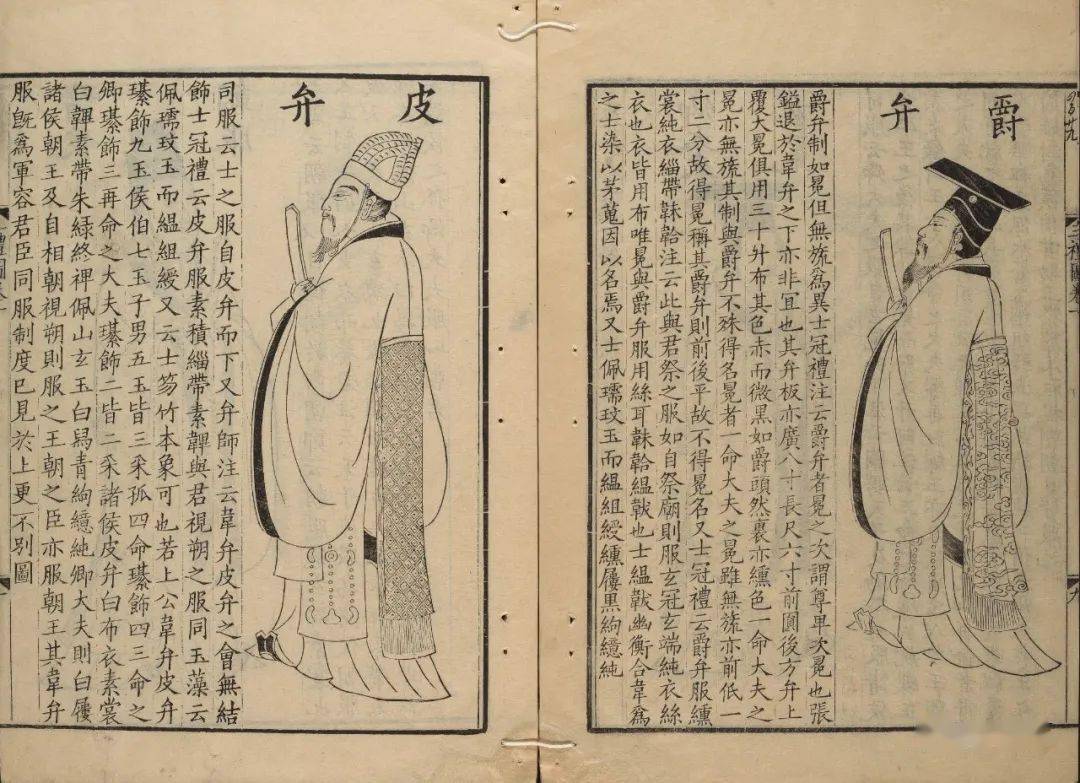 爵弁
爵弁制如冕但無旒為異士冠禮注云爵弁者冕之次謂尊卑次冕也張
鎰退於韋弁之下亦非宜也其弁板亦廣八寸長尺六寸前圓後方弁上
覆大冕俱用三十升布其色赤而微黑如爵頭然裹亦纁色一命大夫之
冕亦無旒其制與爵弁不殊得名冕者一命大夫之冕雖無旒亦前低一
寸二分故得冕稱其爵弁則前後平故不得冕名又士冠禮云爵弁服纁
裳純衣緇帶韎韐注云此與君祭之服如自祭廟則服玄冠玄端純衣絲
衣也衣皆用布唯冕與爵弁服用絲耳韎韐緼韍也士緼韍幽衡合韋為
之士染以茅蒐因以名焉又士佩瓀玟玉而緼組綬纁屨黑絇繶純
皮弁
司服云士之服自皮弁而下又弁師注云韋弁皮弁之會無結
飾士冠禮云皮弁服素積緇帶素韠與君視朔之服同玉藻云
佩瓀玟玉而緼組綬又云士笏竹本象可也若上公韋弁皮弁
璂飾九玉侯伯七玉子男五玉皆三采孤四命璂飾四三命之
卿璂飾三再命之大夫璂飾二皆二采諸侯皮弁白布衣素裳
白韠素帶朱緑終裨佩山玄玉白舄青絇繶純卿大夫則白屨
諸侯朝王及自相朝視朔則服之王朝之臣亦服朝王其韋弁
服旣為軍容君臣同服制度已見於上更不別圖